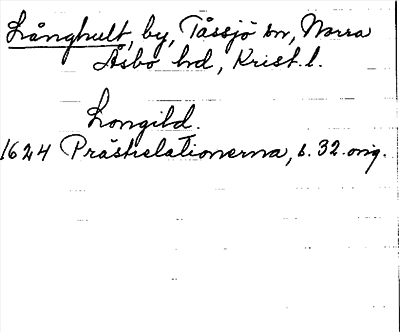 Långhult, by, Tåssjö sn, Norra
Åsbo hd, Krist. l.
Longild.
1624 Prästrelationerna, s. 32. orig.